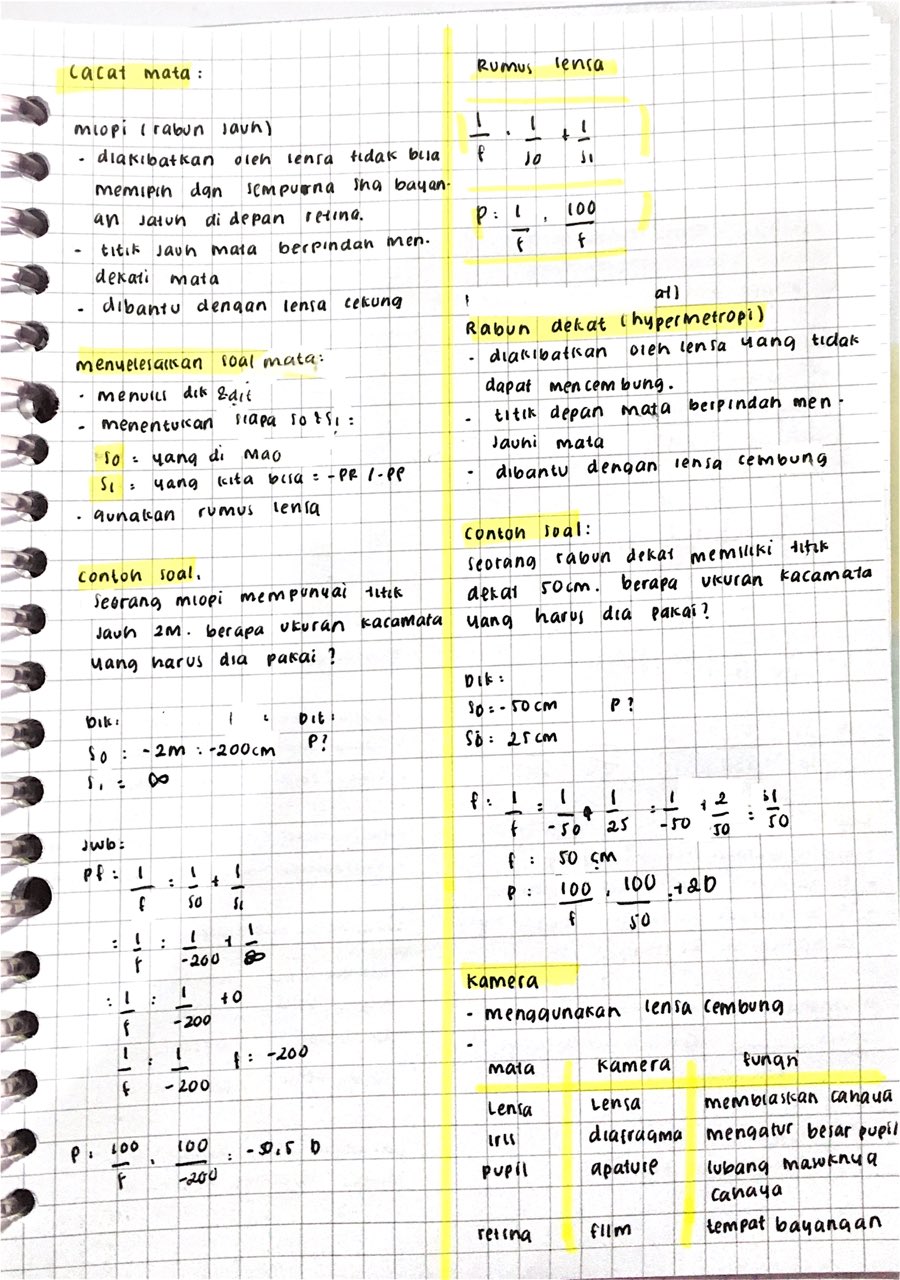 Cacat mata :
miopi (rabun jauh)
- diakibatkan oleh lensa tidak bisa
memipih dgn sempurna shg bayan-
an jatuh di depan retina.
- titik jauh mata berpindah men-
dekati mata
- dibantu dengan lensa cekung
menyelesaikan soal mata:
- menulis dik & dit
- menentukan siapa so & si :
so = yang di mao
si = yang kita bisa = -PR / -PP
- gunakan rumus lensa
contoh soal.
seorang miopi mempunyai titik
jauh 2M. berapa ukuran kacamata
yang harus dia pakai ?
Dik: Dit:
so : -2M : -200cm P?
si = ∞
Jwb:
Pf : 1/f = 1/so + 1/si
: 1/f = 1/-200 + 1/∞
: 1/f = 1/-200 + 0
1/f = 1/-200 f : -200
P : 100/f = 100/-200 = -0,5 D
Rumus lensa
1/f = 1/so + 1/si
P : 1/f = 100/f
at)
Rabun dekat (hypermetropi)
- diakibatkan oleh lensa yang tidak
dapat mencembung.
- titik depan mata berpindah men-
jauhi mata
- dibantu dengan lensa cembung
contoh soal:
seorang rabun dekat memiliki titik
dekat 50cm. berapa ukuran kacamata
yang harus dia pakai?
Dik:
so = -50 cm P?
: 25 cm
f : 1/f = 1/-50 + 1/25 = 1/-50 + 2/50 = 1/50
f : 50 cm
P : 100/f = 100/50 = +2D
kamera
- menggunakan lensa cembung
-
mata kamera fungsi
lensa lensa membiaskan cahaya
iris diafragma mengatur besar pupil
pupil apature lubang masuknya
cahaya
retina film tempat bayangan